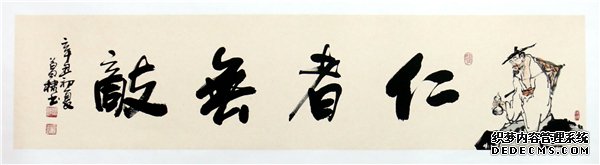 仁者無敵
辛丑初夏
织梦内容管理系统
DEDECMS.COM